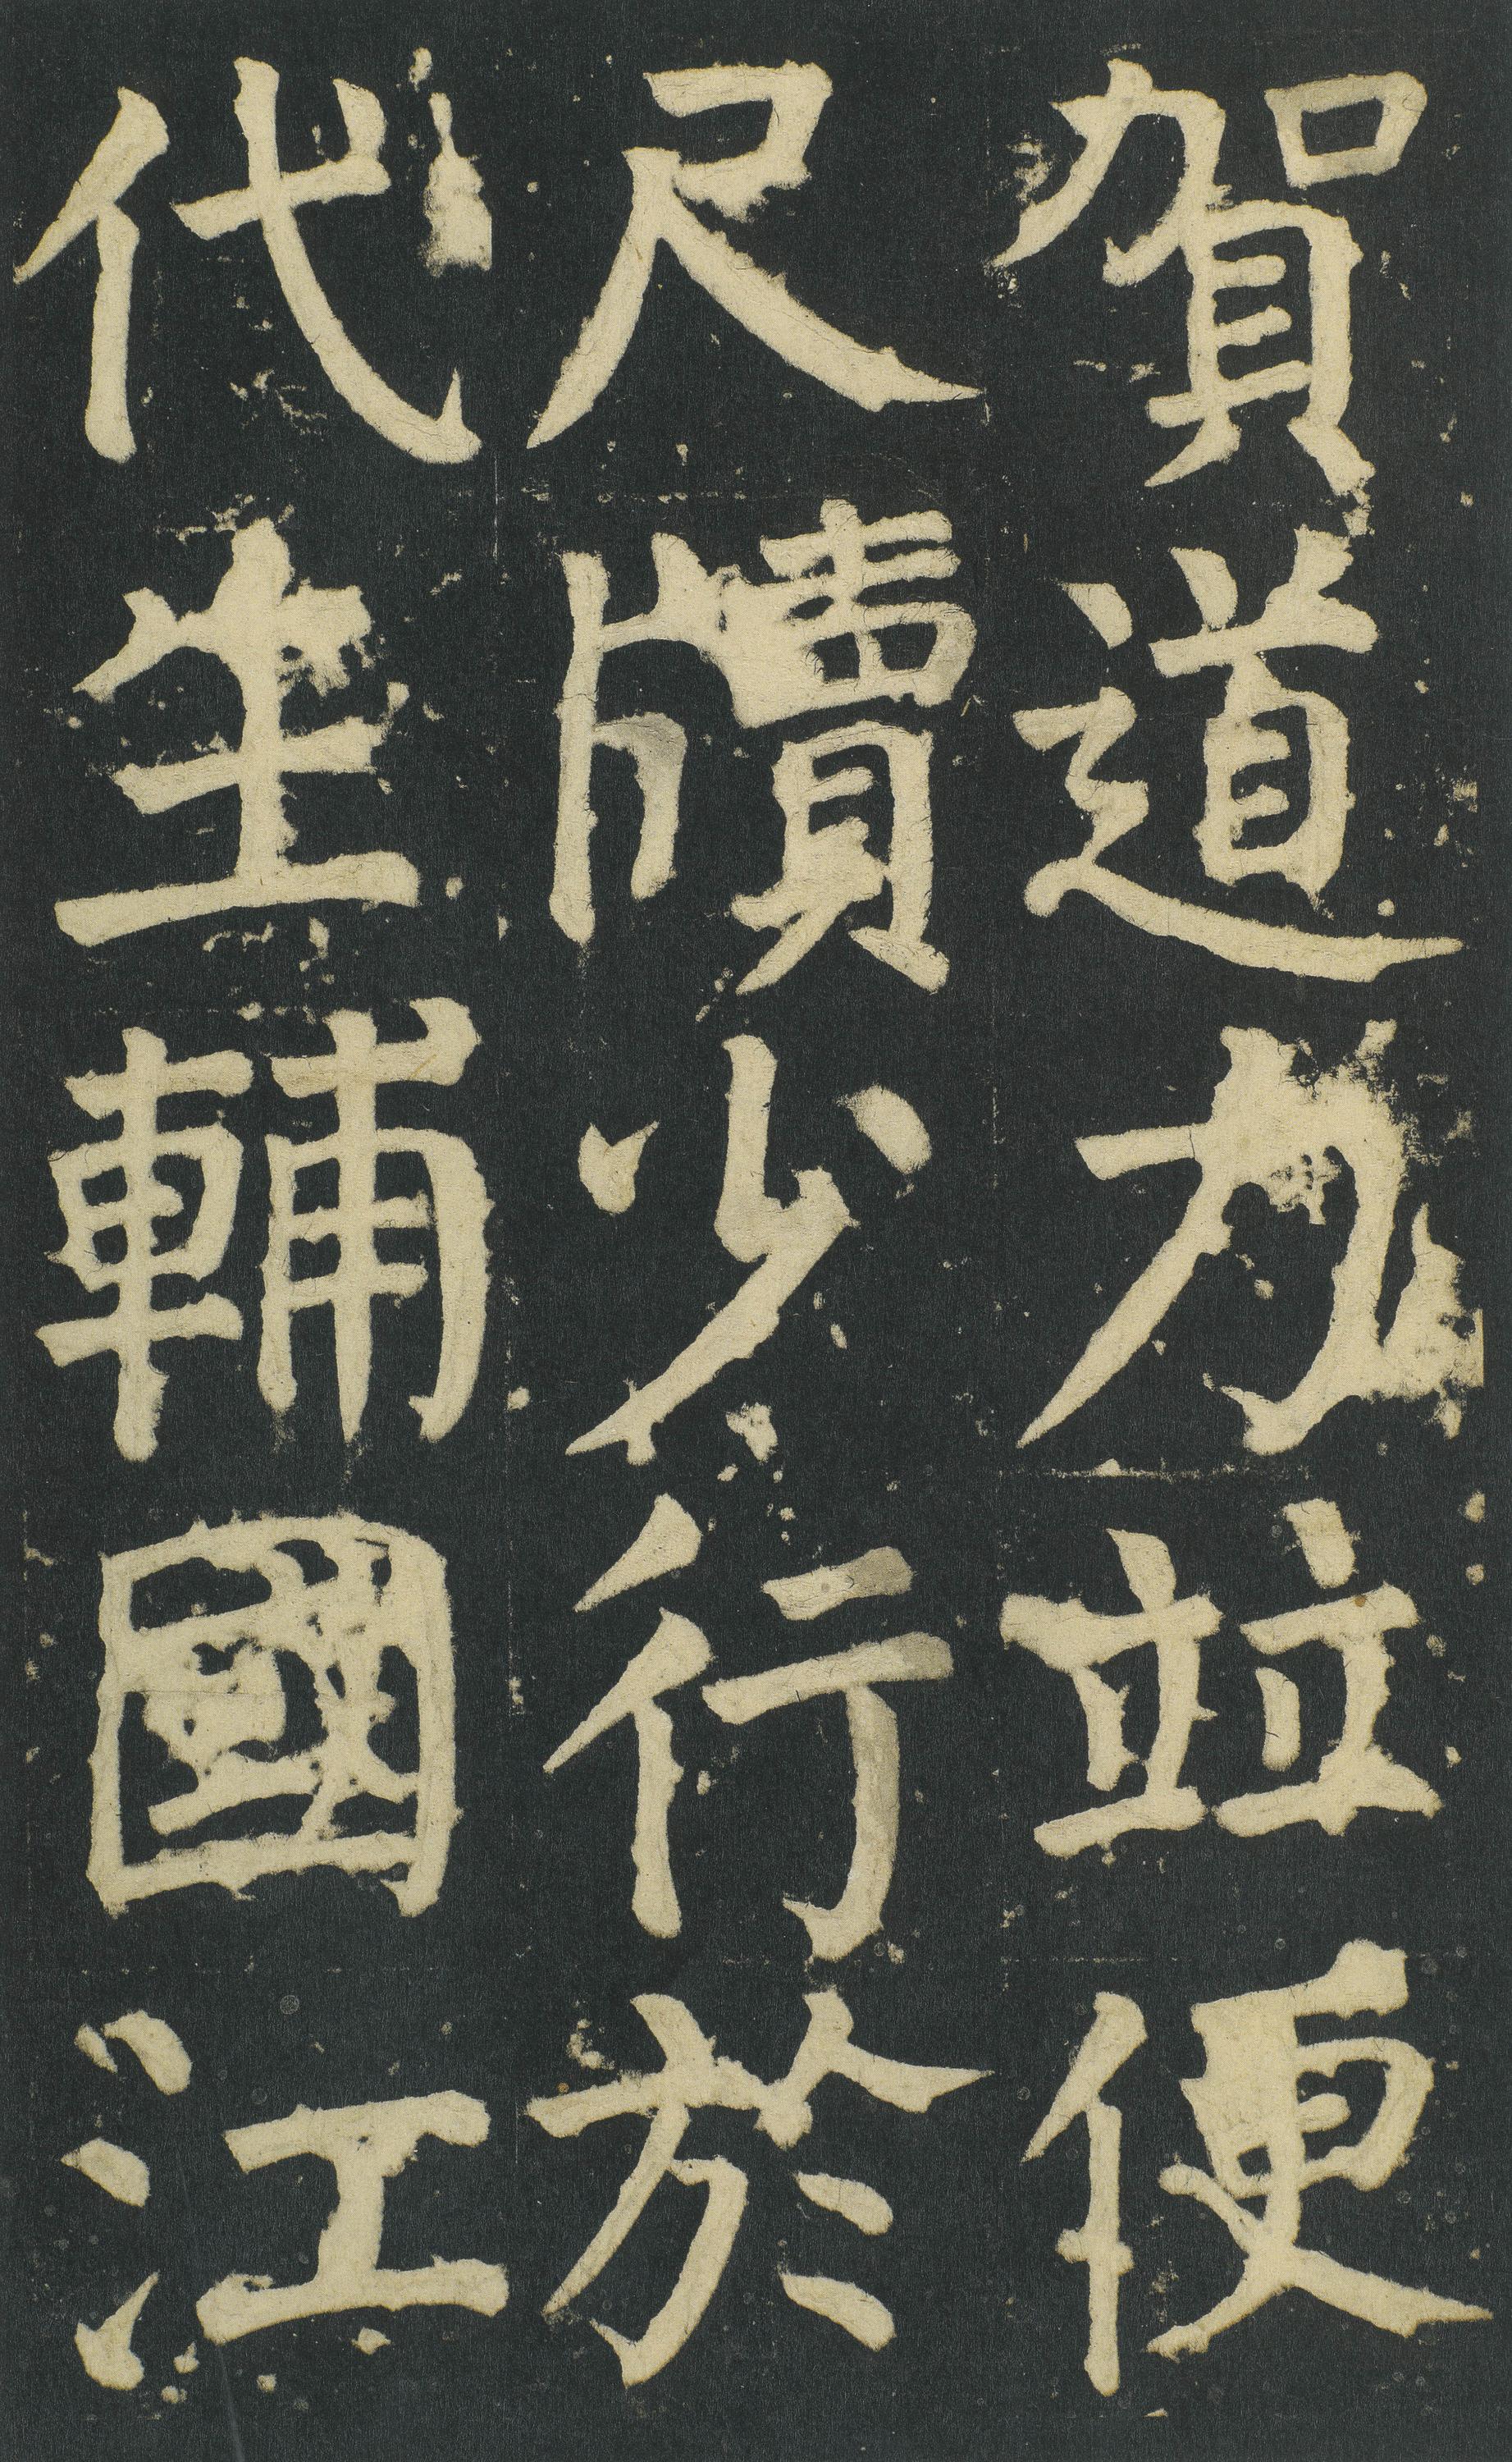 賀道力竝便
尺牘少行於
代生輔國江